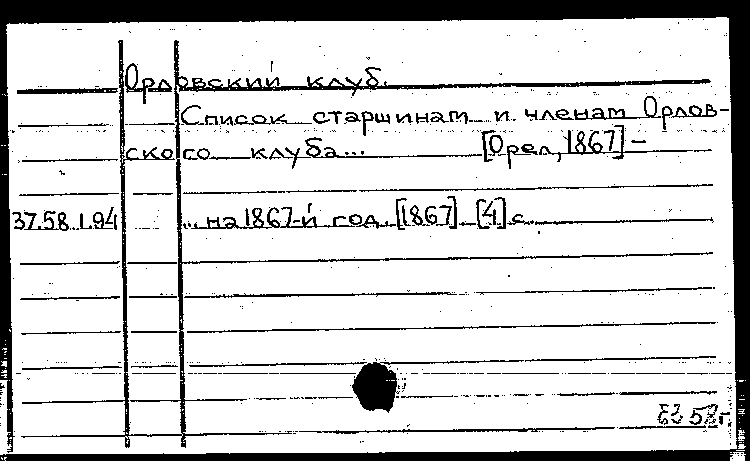 Орловский клуб.
Список старшинам и членам Орлов-
ского клуба... [Орел, 1867] –
37.58.1.94 ... на 1867-й год. [1867]. [4] с.